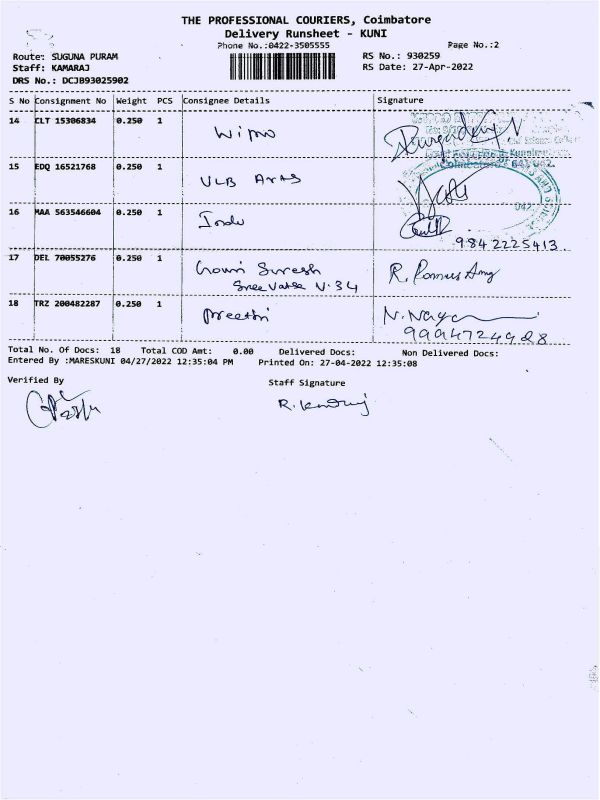 THE PROFESSIONAL COURIERS, Coimbatore
Delivery Runsheet - KUNI
Phone No.:0422-3505555
Page No.:2
Route: SUGUNA PURAM
RS No.: 930259
Staff: KAMARAJ
RS Date: 27-Apr-2022
DRS No.: DCJB93025902
S No Consignment No Weight PCS Consignee Details Signature
14 CLT 15306834 0.250 1 Wipro
15 EDQ 16521768 0.250 1 VLB Arts
16 MAA 563546604 0.250 1 Indu
9842225413
17 DEL 70055276 0.250 1 Gowri Suresh
Sree Vatsa V.34
18 TRZ 200482287 0.250 1 Preethi
9994724928
Total No. Of Docs: 18 Total COD Amt: 0.00 Delivered Docs: Non Delivered Docs:
Entered By :MARESKUNI 04/27/2022 12:35:04 PM Printed On: 27-04-2022 12:35:08
Verified By
Staff Signature